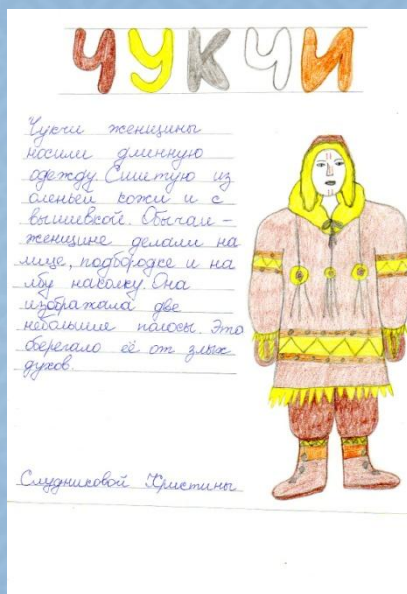 ЧУКЧИ
Чукчи женщины
носили длинную
одежду. Сшитую из
оленьей кожи и с
вышивкой. Обычаи -
женщине делали на
лице, подбородке и на
лбу наколку. Она
изображала две
небольшие полосы. Это
оберегало её от злых
духов.
Слудниковой Кристины